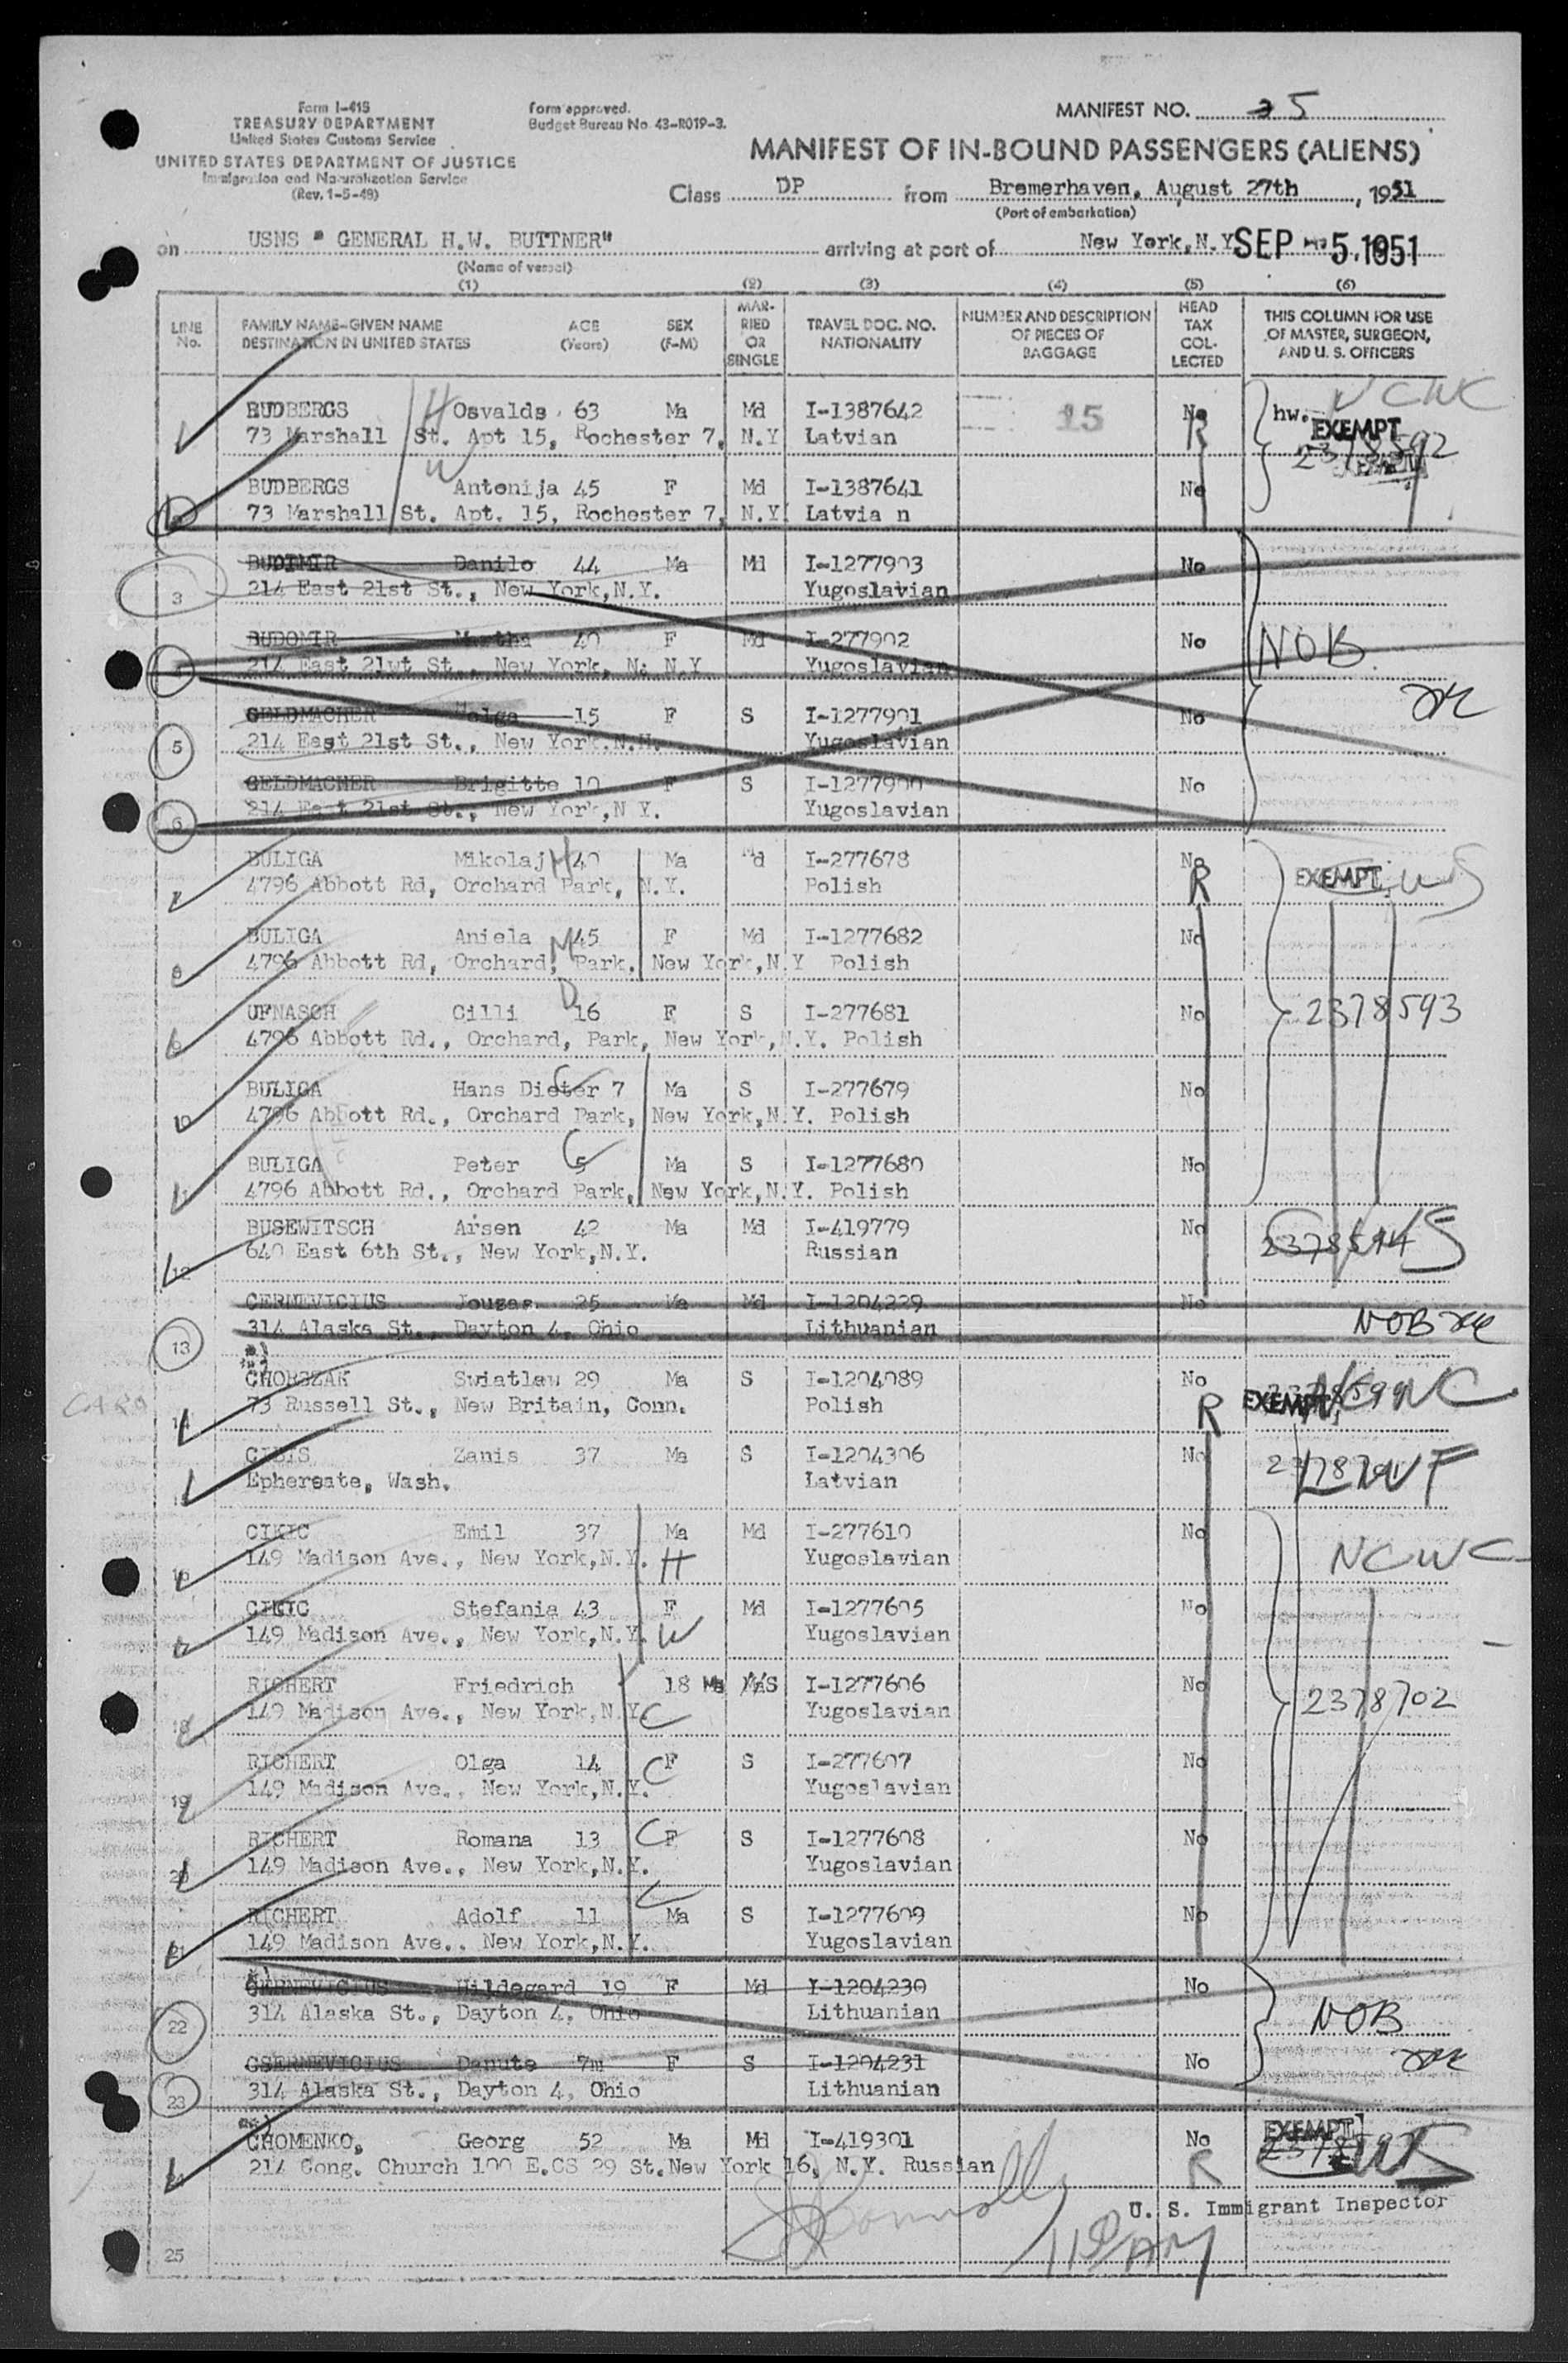 Form I-415
TREASURY DEPARTMENT
United States Customs Service
UNITED STATES DEPARTMENT OF JUSTICE
Immigration and Naturalization Service
(Rev. 1-5-49)
form approved.
Budget Bureau No. 43-R019-3.
MANIFEST NO. 5
MANIFEST OF IN-BOUND PASSENGERS (ALIENS)
Class DP from Bremerhaven, August 27th, 1951
(Port of embarkation)
on USNS " GENERAL H.W. BUTTNER" arriving at port of New York,N.Y. SEP 5 1951
(Name of vessel)
(1) (2) (3) (4) (5) (6)
LINE No. FAMILY NAME-GIVEN NAME DESTINATION IN UNITED STATES AGE (Years) SEX (F-M) MARRIED OR SINGLE TRAVEL DOC. NO. NATIONALITY NUMBER AND DESCRIPTION OF PIECES OF BAGGAGE HEAD TAX COLLECTED THIS COLUMN FOR USE OF MASTER, SURGEON, AND U. S. OFFICERS
BUDBERGS H Osvalds 63 Ma Md I-1387642 15 No hw. NCWC EXEMPT
73 Marshall St. Apt 15, Rochester 7, N.Y Latvian R 2378592
W
BUDBERGS Antonija 45 F Md I-1387641 No
73 Marshall St. Apt. 15, Rochester 7, N.Y. Latvia n
BUDIMIR Danilo 44 Ma Md I-1277903 No
3 214 East 21st St., New York,N.Y. Yugoslavian
BUDOMIR Martha 40 F Md I-277902 No NOB
4 214 East 21wt St., New York, N: N.Y Yugoslavian
GELDMACHER Holga 15 F S I-1277901 No
5 214 East 21st St., New York.N.H. Yugoslavian
GELDMACHER Brigitte 10 F S I-1277900 No
6 214 East 21st St., New York,N Y. Yugoslavian
BULIGA Mikolaj H 40 Ma Md I-277678 No EXEMPT
7 4796 Abbott Rd, Orchard Park, N.Y. Polish R
BULIGA Aniela M 45 F Md I-1277682 No
8 4796 Abbott Rd, Orchard, Park. New York,N.Y Polish
D
UFNASCH Cilli 16 F S I-277681 No 2378593
9 4796 Abbott Rd., Orchard, Park, New York,N.Y. Polish
BULIGA Hans Dieter C 7 Ma S I-277679 No
10 4796 Abbott Rd., Orchard Park, New York,N.Y. Polish
BULIGA Peter C 5 Ma S I-1277680 No
11 4796 Abbott Rd., Orchard Park, New York,N.Y. Polish
BUSEWITSCH Arsen 42 Ma Md I-419779 No
12 640 East 6th St., New York,N.Y. Russian
CERNEVICIUS Jouzas 25 Ma Md I-1204229 No
13 314 Alaska St., Dayton 4, Ohio Lithuanian NOB
CHORSZAK Swiatlaw 29 Ma S I-1204089 No EXEMPT NCWC
14 73 Russell St., New Britain, Conn. Polish R
CIBIS Zanis 37 Ma S I-1204306 No LWF
Ephereate, Wash. Latvian
CIKIC Emil 37 Ma Md I-277610 No NCWC
16 149 Madison Ave., New York,N.Y. H Yugoslavian
CIKIC Stefania 43 F Md I-1277605 No
17 149 Madison Ave., New York,N.Y. W Yugoslavian
RICHERT Friedrich 18 Ma S I-1277606 No 2378702
18 149 Madison Ave., New York,N.Y. C Yugoslavian
RICHERT Olga 14 C F S I-277607 No
19 149 Madison Ave., New York,N.Y. Yugoslavian
RICHERT Romana 13 C F S I-1277608 No
20 149 Madison Ave., New York,N.Y. Yugoslavian
RICHERT Adolf 11 C Ma S I-1277609 No
21 149 Madison Ave., New York,N.Y. Yugoslavian
CERNEVICIUS Hildegard 19 F Md I-1204230 No
22 314 Alaska St., Dayton 4, Ohio Lithuanian NOB
CSERNEVICIUS Danute 7m F S I-1204231 No
23 314 Alaska St., Dayton 4, Ohio Lithuanian
CHOMENKO, Georg 52 Ma Md I-419301 No EXEMPT
24 214 Cong. Church 100 E.CS 29 St.New York 16, N.Y. Russian R
U. S. Immigrant Inspector
25